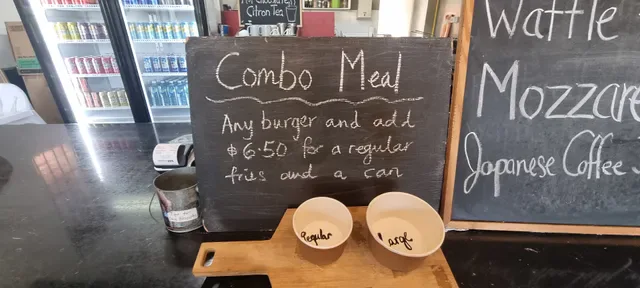 Citron Tea
Combo Meal
Any burger and add
$6.50 for a regular
fries and a can
Regular
Large
Wattle
Mozzare
Japanese Coffee